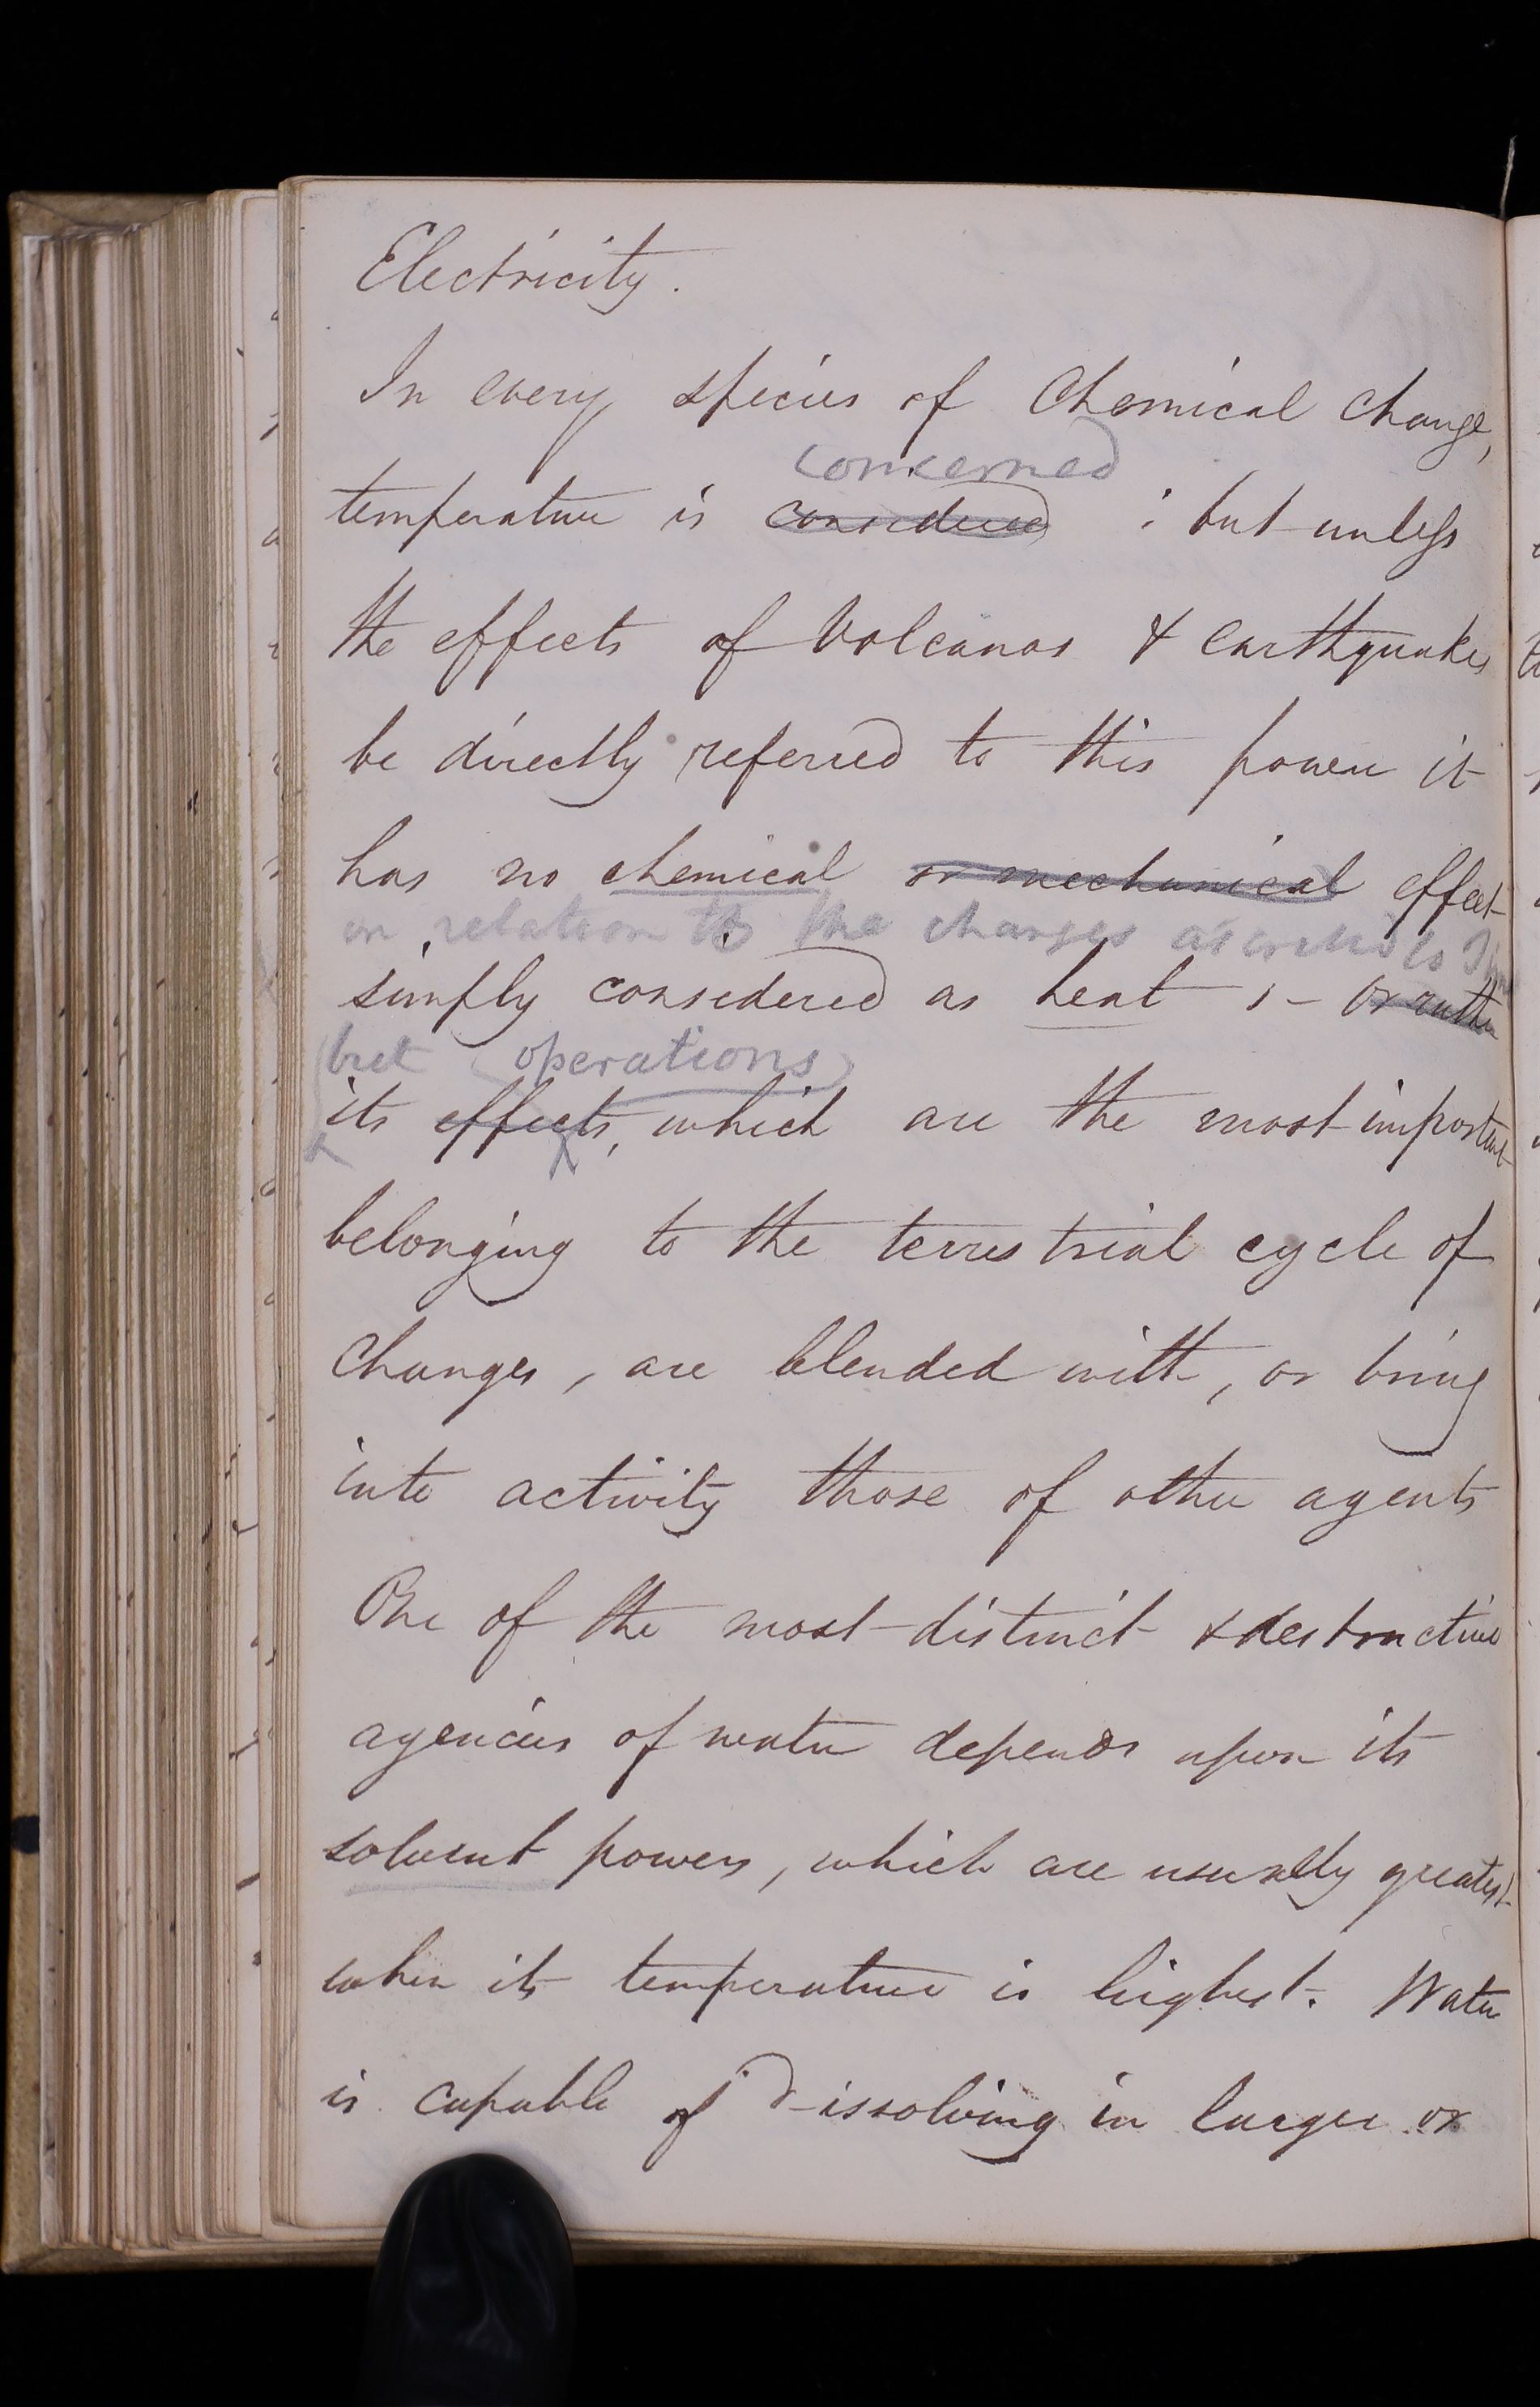 Electricity.
In every species of Chemical change,
concerned
temperature is considered ; but unless
the effects of Volcanos & earthquakes
be directly referred to this power it
has no chemical or mechanical effect
in relation to the changes ascribed to
simply considered as heat ; - or rather
but operations
its effects, which are the most important
belonging to the terrestrial cycle of
changes, are blended with, or bring
into activity those of other agents
One of the most distinct & destructive
agencies of water depends upon its
solvent powers, which are usually greatest
when its temperature is highest. Water
is capable of dissolving in larger or